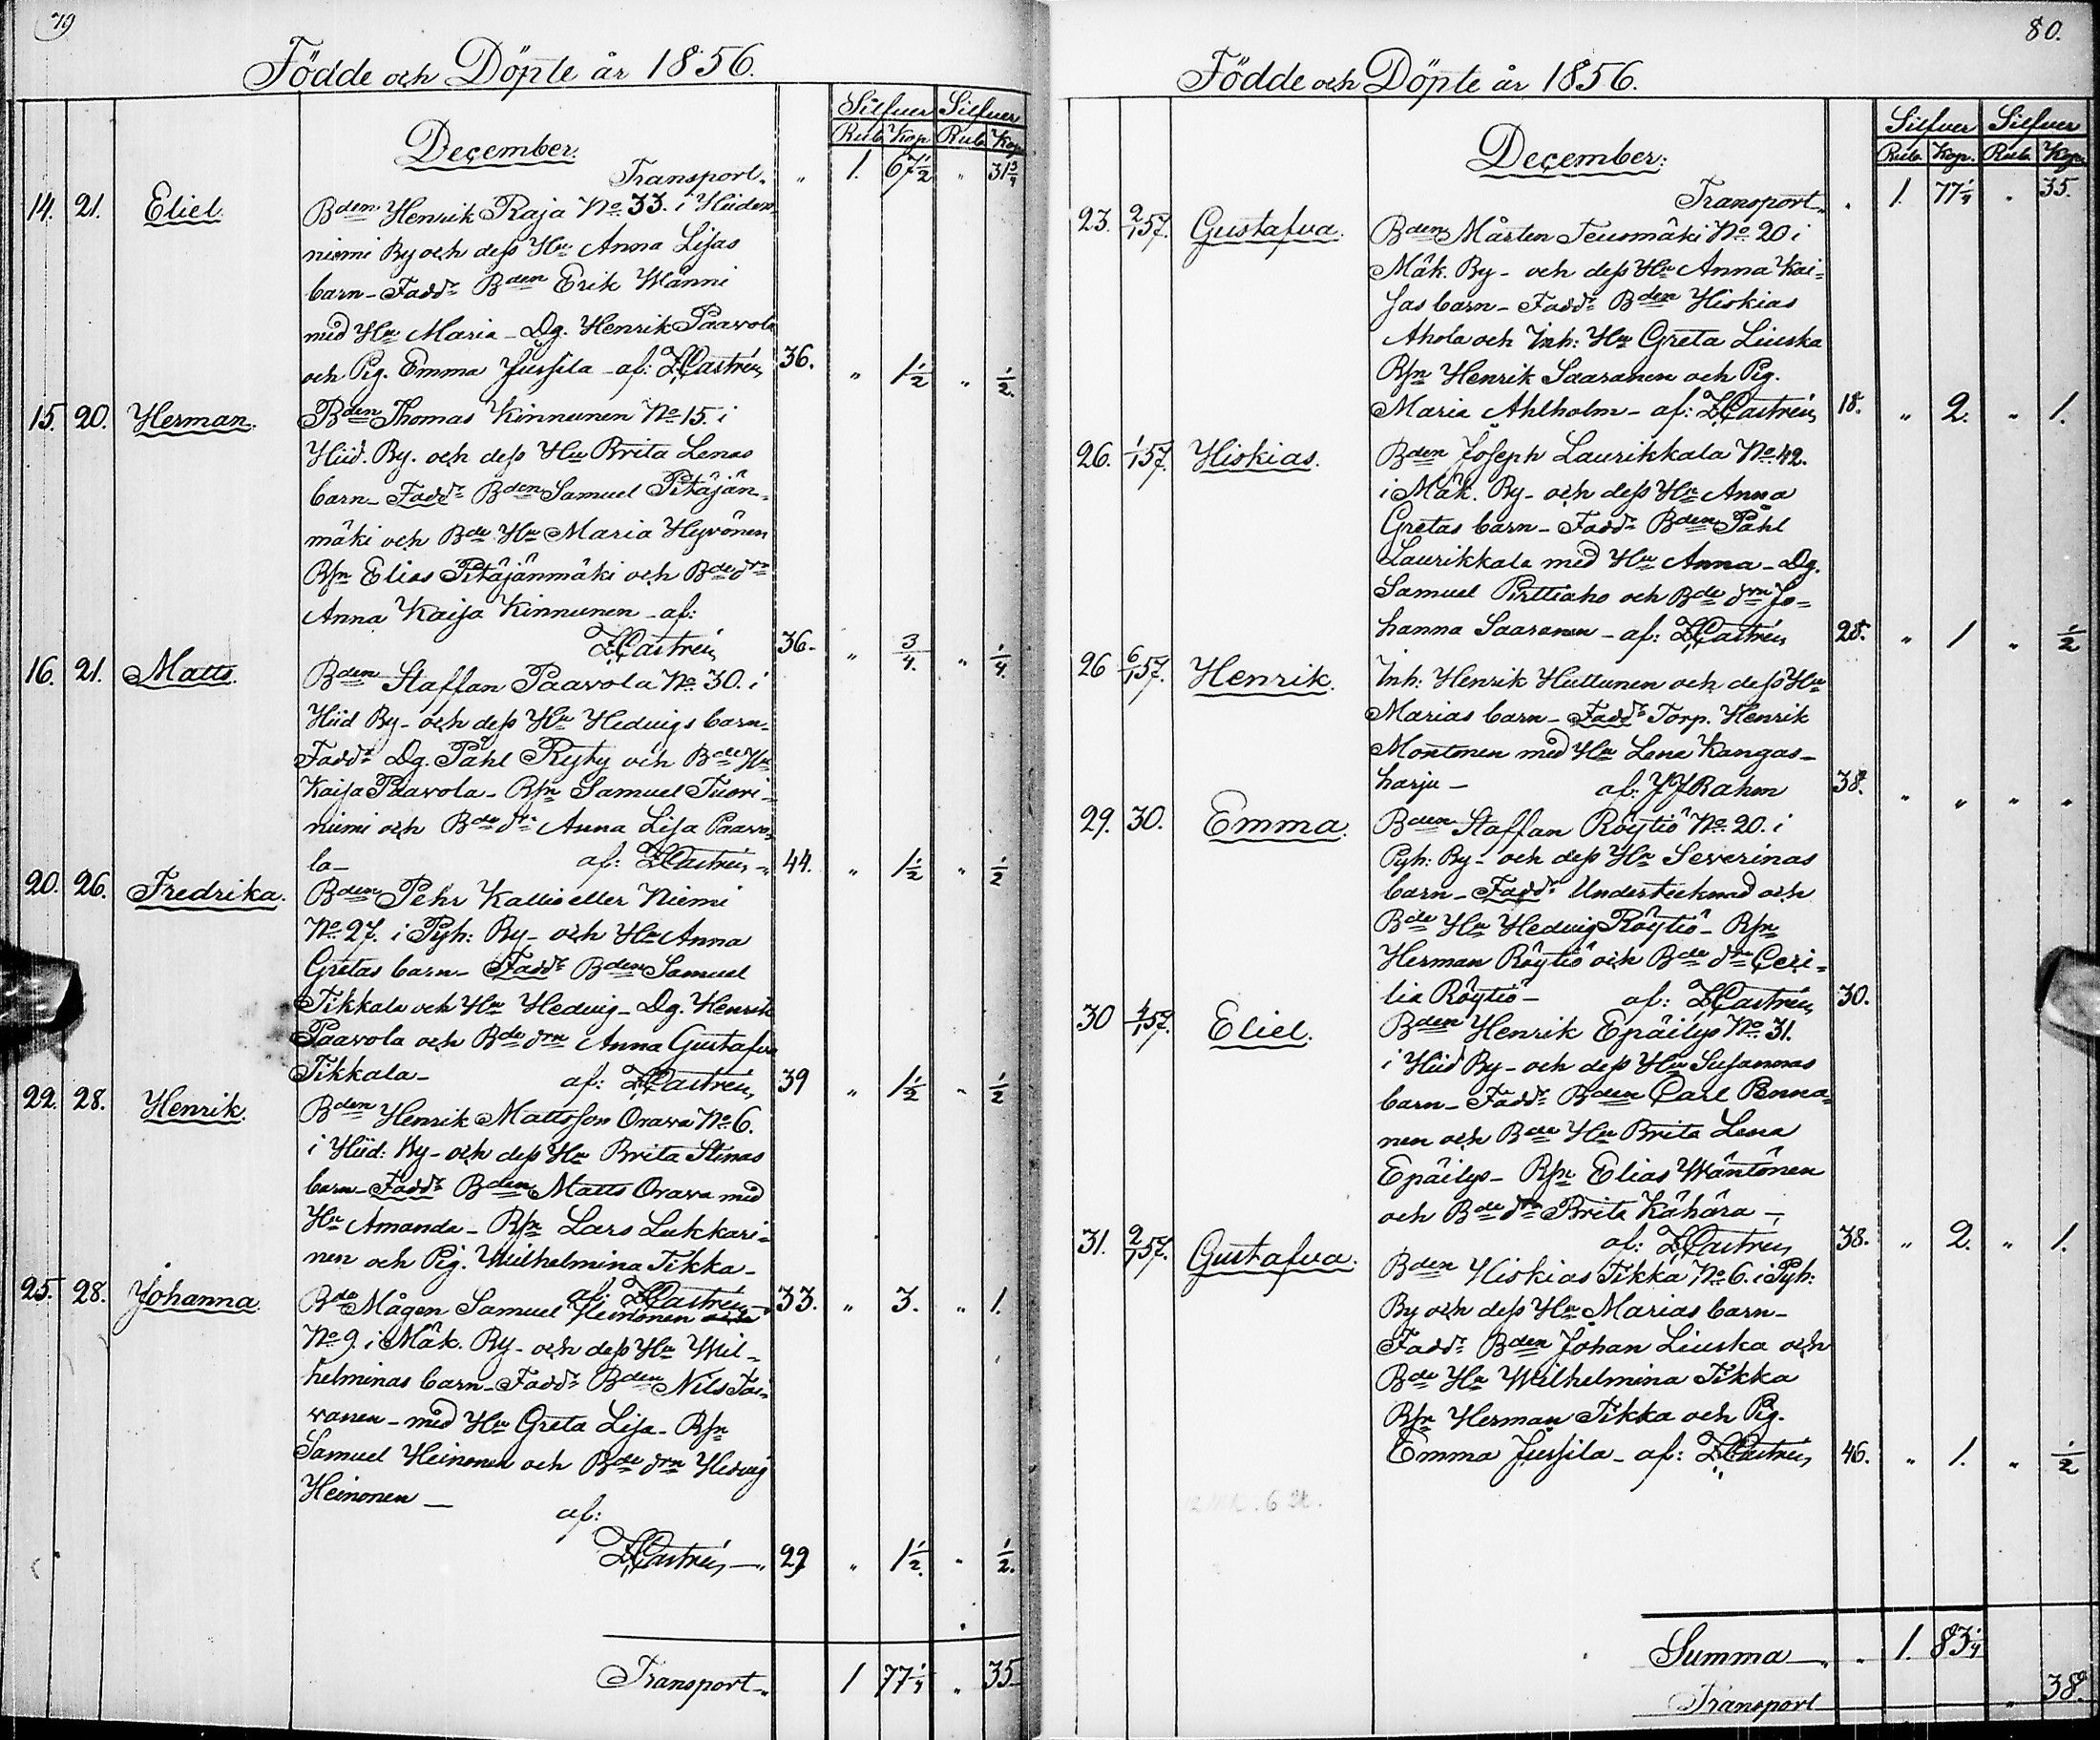 79
Födde och Döpte år 1856.
Silfver Silfver
December. Rub. Kop. Rub. Kop.
Transport. „ 1. 67½ „ 31¾
14. 21. Eliel. Bden Henrik Raja No 33. i Hiiden-
niemi By och dess Hu Anna Lisas
barn - Faddr Bden Erik Männi
med Hu Maria - Dg. Henrik Paavola
och Pig. Emma Jussila - af: Z Castrén 36. „ 1½ „ ½
15. 20. Herman. Bden Thomas Kinnunen No 15. i
Hiid. By. och dess Hu Brita Lenas
barn - Faddr Bden Samuel Pitäjän-
mäki och Bde Hu Maria Hyvönen
Bsn Elias Pitäjänmäki och Bde drn
Anna Kaisa Kinnunen - af:
Z Castrén 36. „ ¾ „ ¼
16. 21. Matts. Bden Staffan Paavola No 30. i
Hiid By - och dess Hu Hedvigs barn -
Faddr Dg. Påhl Ryty och Bde Hu
Kaisa Paavola - Bsn Samuel Tuori-
niemi och Bde drn Anna Lisa Paavo-
la - af: Z Castrén „ 44. „ 1½ „ ½
20. 26. Fredrika. Bden Pehr Kallio eller Niemi
No 27. i Pyh: By - och Hu Anna
Gretas barn - Faddr Bden Samuel
Tikkala och Hu Hedvig - Dg. Henrik
Paavola och Bde drn Anna Gustafva
Tikkala - af: Z Castrén 39 „ 1½ „ ½
22. 28. Henrik. Bden Henrik Mattsson Orava No 6.
i Hiid: By - och dess Hu Brita Stinas
barn - Faddr Bden Matts Orava med
Hu Amanda - Bsn Lars Lukkari-
nen och Pig. Wilhelmina Tikka -
af: Z Castrén 33. „ 3. „ 1.
25. 28. Johanna. Bde Mågen Samuel Heinonen
No 9. i Mäk. By - och dess Hu Wil-
helminas barn - Faddr Bden Nils Tai-
vanen - med Hu Greta Lisa - Bsn
Samuel Heinonen och Bde drn Hedvig
Heinonen -
af:
Z Castrén - 29 „ 1½ „ ½
Transport „ 1 77¼ „ 35
80.
Födde och Döpte år 1856.
Silfver Silfver
December. Rub. Kop. Rub. Kop.
Transport „ 1. 77¼ „ 35.
23. 2/1 57. Gustafva. Bden Mårten Teusmäki No 20 i
Mäk. By - och dess Hu Anna Kai-
sas barn - Faddr Bden Hiskias
Ahola och Inh: Hu Greta Liuska
Bsn Henrik Saaranen och Pig.
Maria Ahlholm - af: Z Castrén 18. „ 2. „ 1.
26. 1/1 57. Hiskias. Bden Joseph Laurikkala No 42.
i Mäk. By - och dess Hu Anna
Gretas barn - Faddr Bden Påhl
Laurikkala med Hu Anna - Dg.
Samuel Pirttiaho och Bde drn Jo-
hanna Saaranen - af: Z Castrén 28. „ 1 „ ½
26 6/1 57. Henrik. Inh: Henrik Huttunen och dess Hu
Marias barn - Faddr Torp. Henrik
Montonen med Hu Lena Kangas-
harju - af: J J Rahm 38. „ „ „ „
29. 30. Emma. Bden Staffan Röytiö No 20. i
Pyh: By - och dess Hu Severinas
barn - Faddr Undertecknad och
Bde Hu Hedvig Röytiö - Bsn
Herman Röytiö och Bde drn Ceci-
lia Röytiö - af: Z Castrén 30.
30 4/1 57. Eliel. Bden Henrik Epäilys No 31.
i Hiid By - och dess Hu Susannas
barn - Faddr Bden Carl Penna-
nen och Bde Hu Brita Lena
Epäilys - Bsn Elias Wäntönen
och Bde drn Brita Kähärä -
af: Z Castrén 38. „ 2. „ 1.
31. 2/1 57. Gustafva. Bden Hiskias Tikka No 6. i Pyh:
By och dess Hu Marias barn -
Faddr Bden Johan Liuska och
Bde Hu Wilhelmina Tikka
Bsn Herman Tikka och Pig.
Emma Jussila - af: Z Castrén 46. „ 1. „ ½
Summa „ 1. 83¼
Transport „ 38.